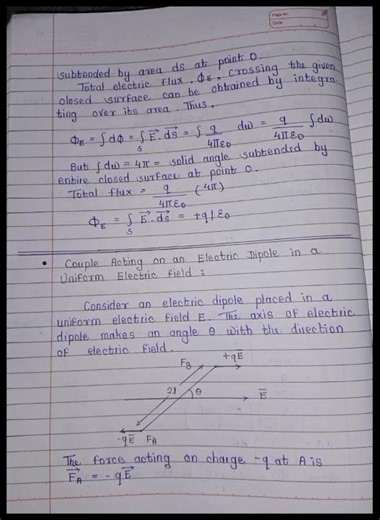 subtended by area ds at point O.
Total electric flux, Φ_E, crossing the given
closed surface can be obtained by integra
ting over its area. Thus,
Φ_E = ∫dΦ = ∫_S E⃗.ds⃗ = ∫ q/4πε₀ dω = q/4πε₀ ∫dω
But ∫dω = 4π = solid angle subtended by
entire closed surface at point O.
Total flux = q/4πε₀ (4π)
Φ_E = ∫_S E⃗.ds⃗ = +q/ε₀
• Couple Acting on an Electric Dipole in a
Uniform Electric field :
Consider an electric dipole placed in a
uniform electric field E. The axis of electric
dipole makes an angle θ with the direction
of electric field.
F_B +qE⃗
2l θ E⃗
-qE⃗ F_A
The force acting on charge -q at A is
F⃗_A = -qE⃗